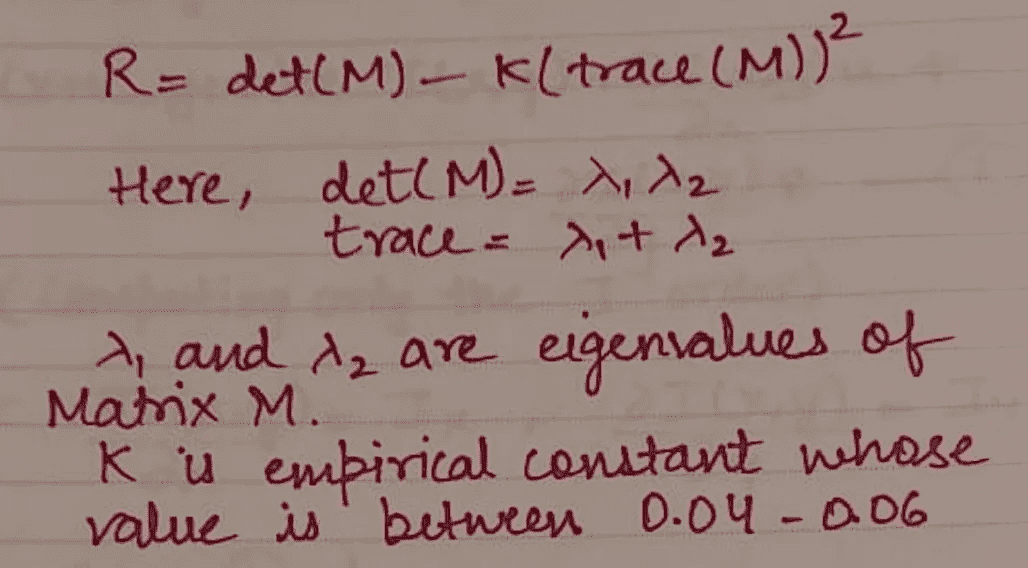 R= det(M) - K(trace(M))²
Here, det(M)= λ₁λ₂
trace = λ₁+λ₂
λ₁ and λ₂ are eigenvalues of
Matrix M.
K is empirical constant whose
value is between 0.04 - 0.06